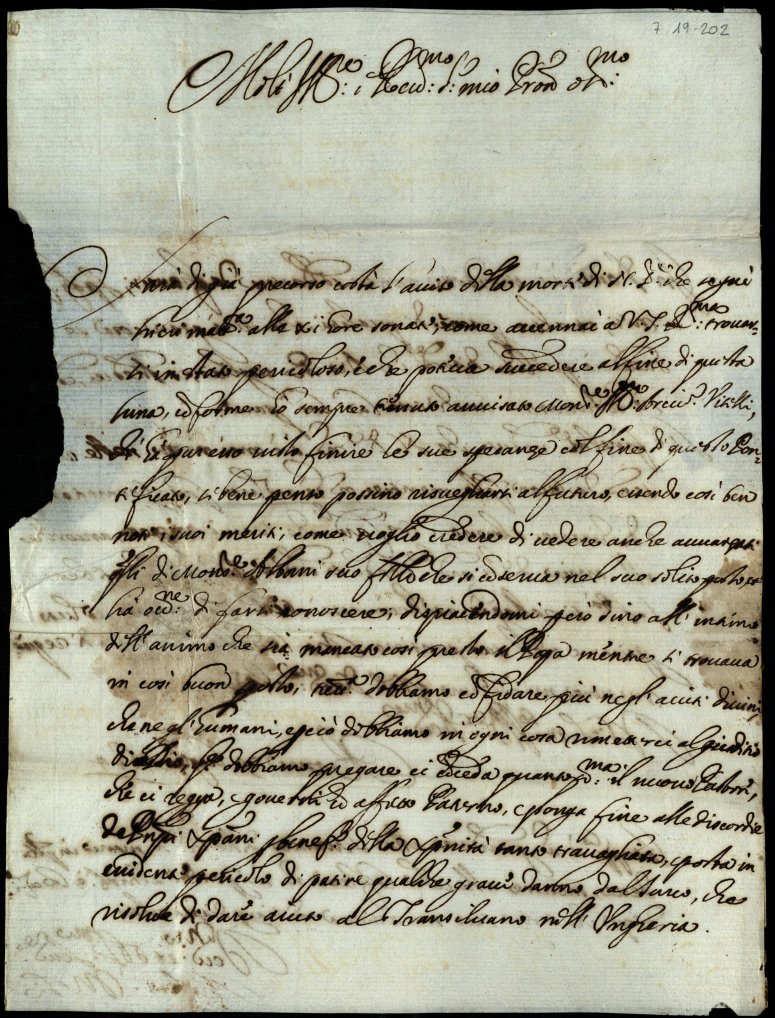 7 19-202
Molt' Ill.re e Rev.mo s.r mio Pron oss.mo
Sarà di già precorso costà l'aviso della morte di N. S.re che seguì
alla xi hore sonate, come accennai a V.S. R.ma trovar-
si in stato pericoloso, e che poteva succedere al fine di questa
luna, conforme hò sempre tenuto avvisato Mon.re Ill.mo e Rev.mo Vitelli,
ch'hà pur esso visto finire le sue speranze col fine di questo Pon-
tificato, se bene penso possino risvegliarsi al futuro, essendo così ben
noti i suoi meriti, come voglio credere di vedere anche avvantaggiati
gli di Mons.re Albani suo che si conserva nel suo solito posto, et
hà occ.ne di farsi conoscere, dispiacendomi però sino all'intimo
dell'animo che sia mancato così presto il Papa mentre si trovava
in così buon posto, dobbiamo confidare più negl'aiuti divini,
che negl'humani, e perciò dobbiamo in ogni cosa rimetterci al giuditio
di Dio, che dobbiamo pregare ci conceda quanto p.ma il nuovo Pastore,
che ci regga, e governi con affetto Paterno, e ponga fine alle discordie
de Prnpi Xpiani per benef.o della Xpnità tanto travagliata, e posta in
evidente pericolo di patire qualche grave danno dal Turco, che
risolve di dare aiuto al Transilvano nell'Ungheria.